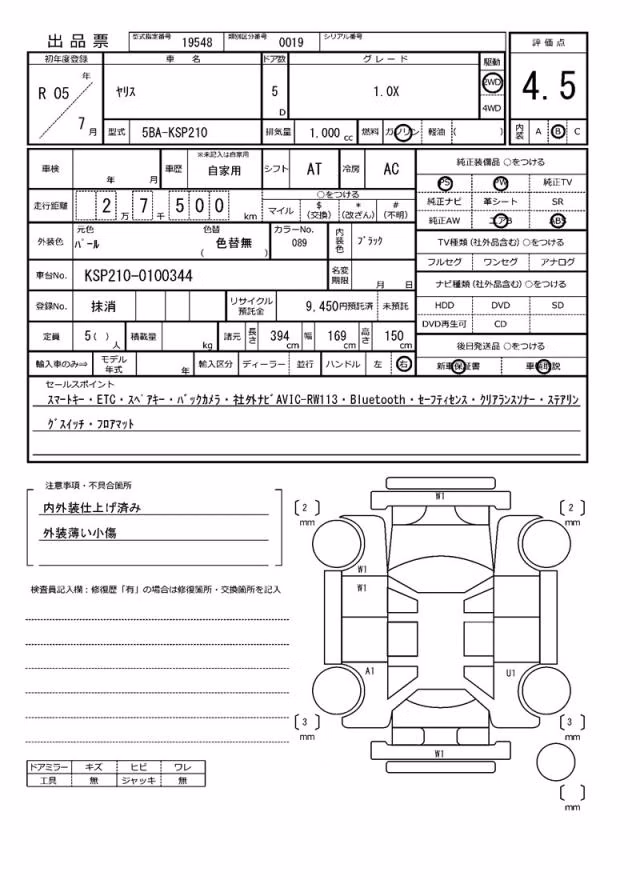 出品票 型式指定番号 19548 類別区分番号 0019 シリアル番号
評価点
4.5
内装 A B C
初年度登録 車名 ドア数 グレード 駆動
R 05 年 7 月 ヤリス 5 D 1.0X 2WD 4WD
型式 5BA-KSP210 排気量 1.000 cc 燃料 ガソリン 軽油 ( )
車検 年 月 車歴 ※未記入は自家用 自家用 シフト AT 冷房 AC
走行距離 2 万 7 千 5 0 0 km ○をつける
マイル $(交換) *(改ざん) #(不明)
外装色 元色 パール 色替 ( 色替無 ) カラーNo. 089 内装色 ブラック
車台No. KSP210-0100344 名変期限 月 日
登録No. 抹消 リサイクル預託金 9,450円預託済 未預託
定員 5( )人 積載量 kg 諸元 長さ 394 cm 幅 169 cm 高さ 150 cm
輸入車のみ⇒ モデル年式 年 輸入区分 ディーラー 並行 ハンドル 左 右
純正装備品 ○をつける
PS PW 純正TV
純正ナビ 革シート SR
純正AW エアB ABS
TV種類(社外品含む)○をつける
フルセグ ワンセグ アナログ
ナビ種類(社外品含む)○をつける
HDD DVD SD
DVD再生可 CD
後日発送品 ○をつける
新車保証書 車輌取説
セールスポイント
スマートキー・ETC・スペアキー・バックカメラ・社外ナビAVIC-RW113・Bluetooth・セーフティセンス・クリアランスソナー・ステアリン
グスイッチ・フロアマット
注意事項・不具合箇所
内外装仕上げ済み
外装薄い小傷
検査員記入欄:修復歴「有」の場合は修復箇所・交換箇所を記入
W1
[ 2 ] mm [ 2 ] mm
W1
W1
A1 U1
[ 3 ] mm [ 3 ] mm
W1
[ ] mm
ドアミラー キズ ヒビ ワレ
工具 無 ジャッキ 無